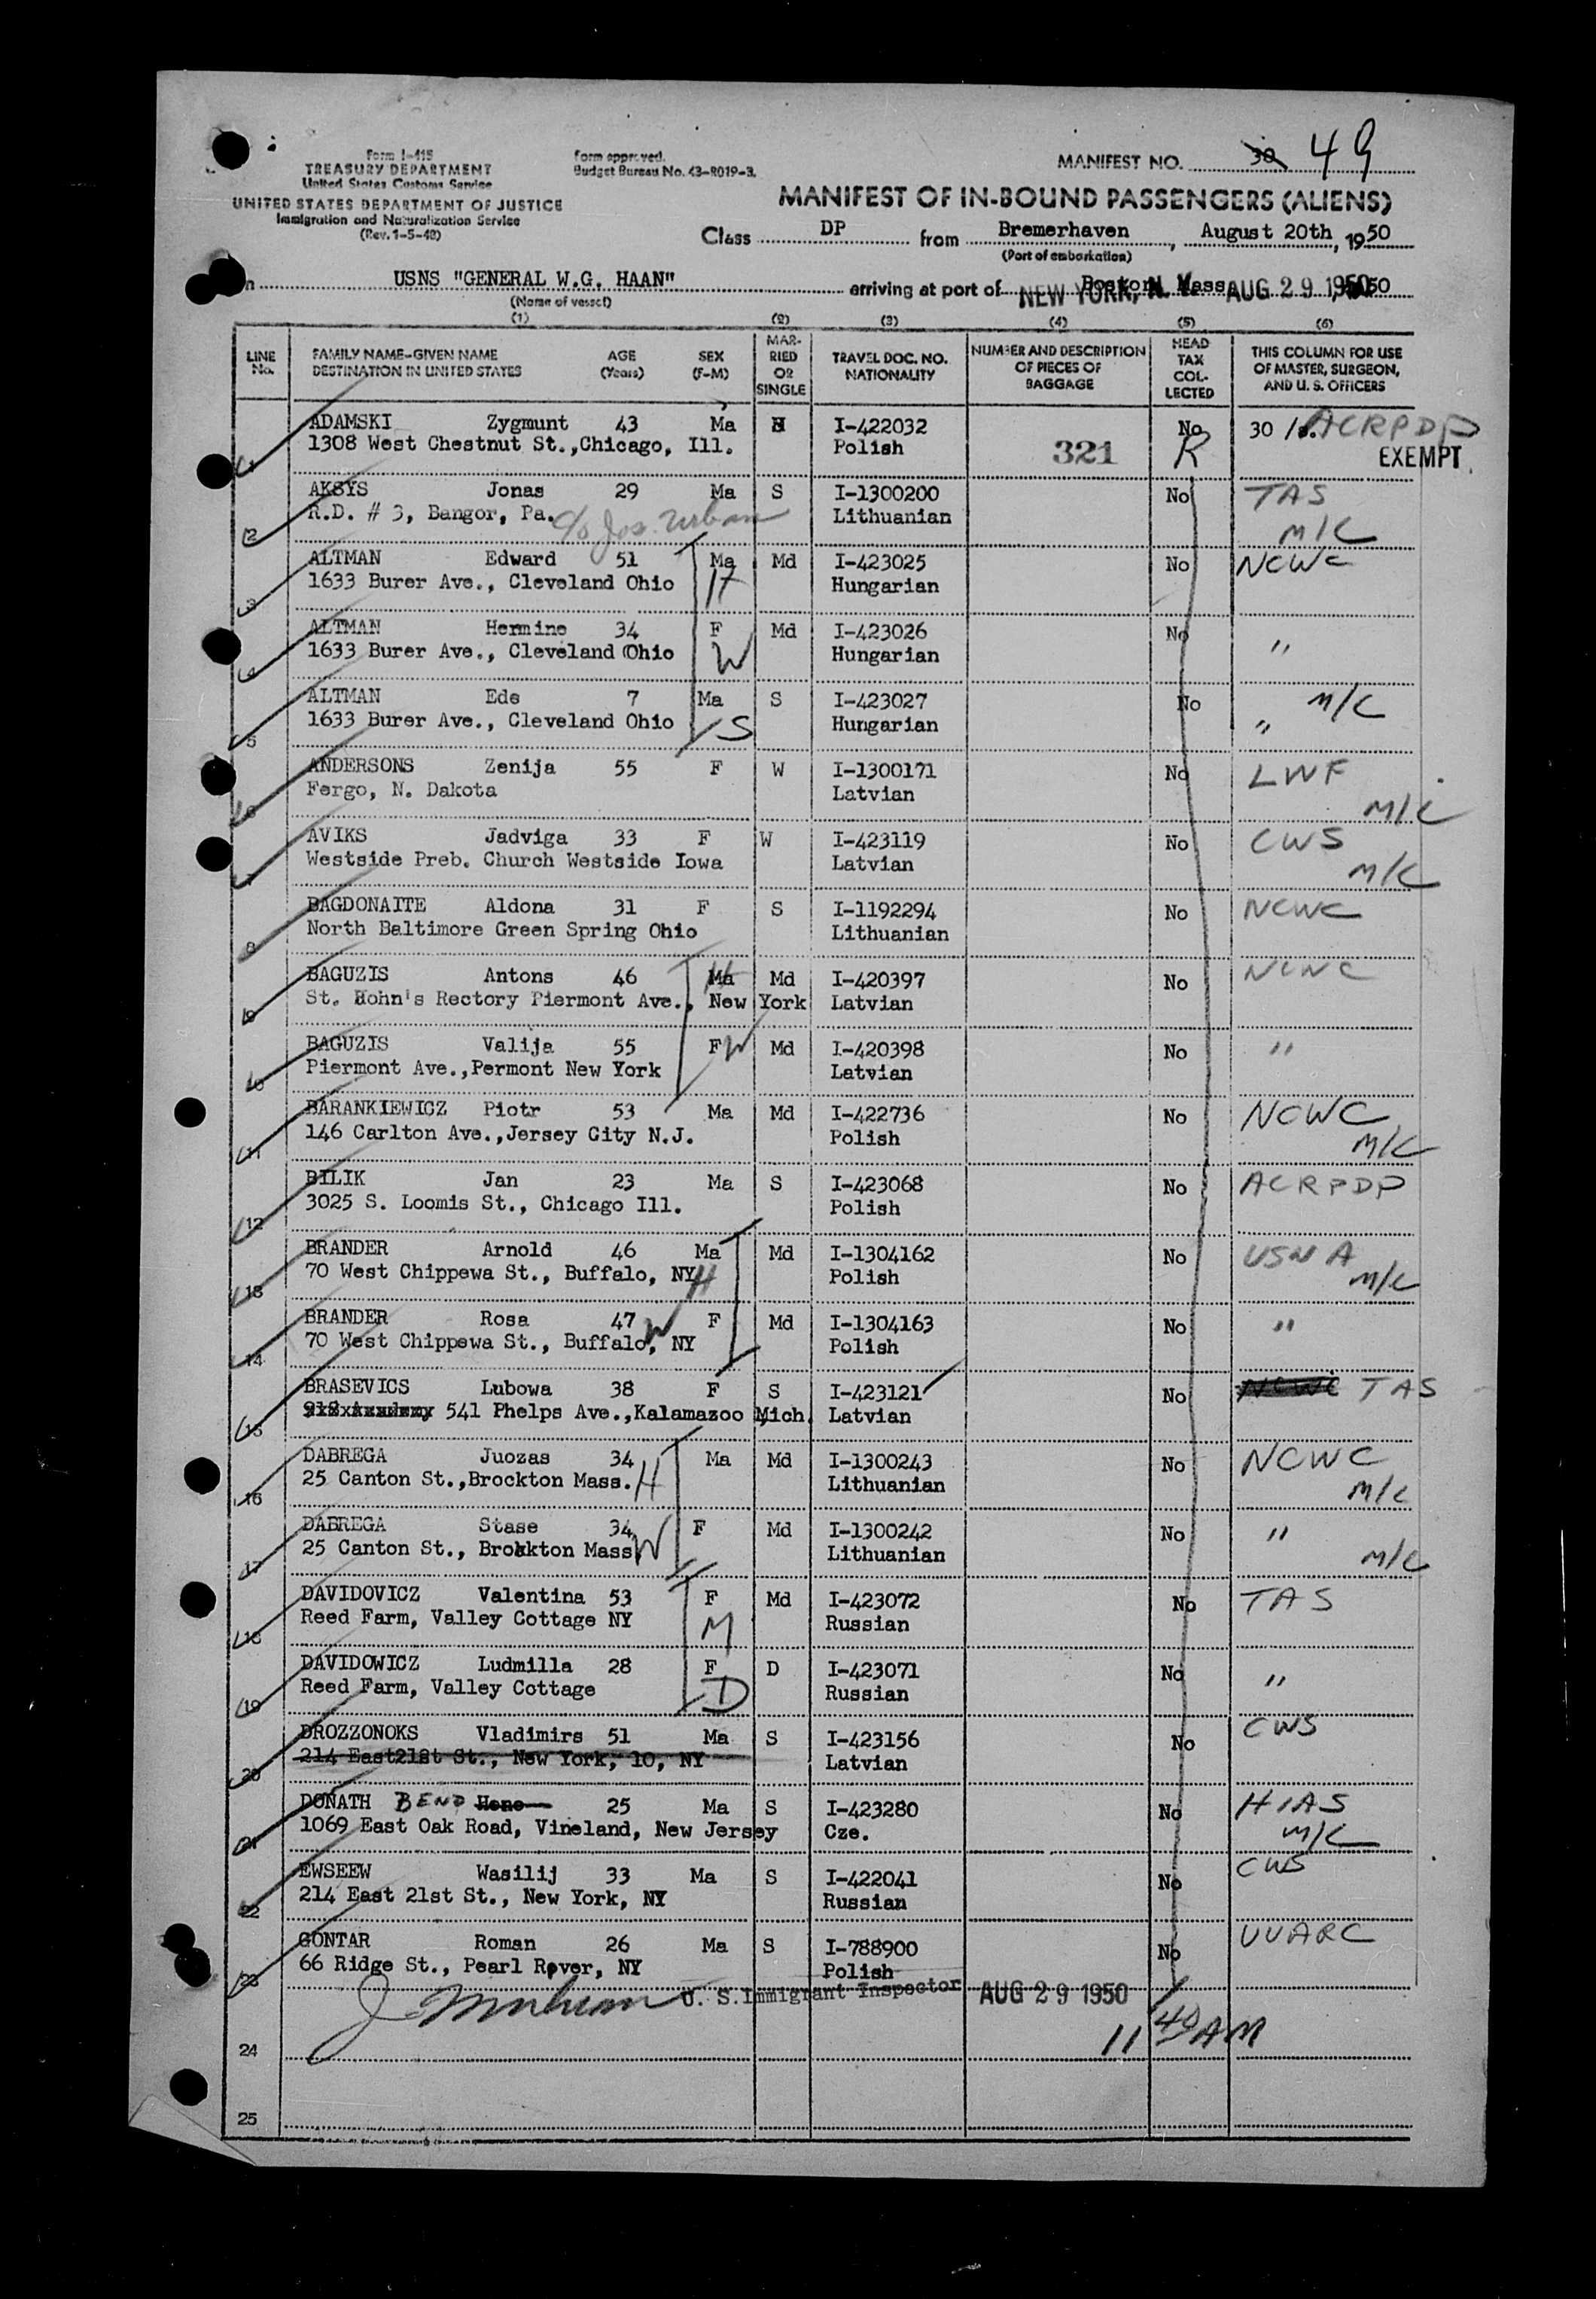 Form I-415
TREASURY DEPARTMENT
United States Customs Service
UNITED STATES DEPARTMENT OF JUSTICE
Immigration and Naturalization Service
(Rev. 1-5-48)
Form approved.
Budget Bureau No. 43-R019-3.
MANIFEST NO. 30 49
MANIFEST OF IN-BOUND PASSENGERS (ALIENS)
Class DP from Bremerhaven, August 20th, 1950
(Port of embarkation)
USNS "GENERAL W.G. HAAN" arriving at port of Boston, Mass. NEW YORK, N. Y. AUG 29 1950 50
(Name of vessel)
(1) (2) (3) (4) (5) (6)
LINE No. FAMILY NAME-GIVEN NAME DESTINATION IN UNITED STATES AGE (Years) SEX (F-M) MARRIED OR SINGLE TRAVEL DOC. NO. NATIONALITY NUMBER AND DESCRIPTION OF PIECES OF BAGGAGE HEAD TAX COLLECTED THIS COLUMN FOR USE OF MASTER, SURGEON, AND U. S. OFFICERS
1 ADAMSKI Zygmunt 43 Ma I-422032 No 30 ACRPDP
1308 West Chestnut St.,Chicago, Ill. Polish 321 R EXEMPT
2 AKSYS Jonas 29 Ma S I-1300200 No TAS
R.D. # 3, Bangor, Pa. c/o Jos. Urban Lithuanian M/C
3 ALTMAN Edward 51 Ma Md I-423025 No NCWC
1633 Burer Ave., Cleveland Ohio H Hungarian
4 ALTMAN Hermine 34 F Md I-423026 No
1633 Burer Ave., Cleveland Ohio W Hungarian "
5 ALTMAN Ede 7 Ma S I-423027 No M/C
1633 Burer Ave., Cleveland Ohio S Hungarian "
6 ANDERSONS Zenija 55 F W I-1300171 No LWF
Fergo, N. Dakota Latvian M/C
7 AVIKS Jadviga 33 F W I-423119 No CWS
Westside Preb. Church Westside Iowa Latvian M/C
8 BAGDONAITE Aldona 31 F S I-1192294 No NCWC
North Baltimore Green Spring Ohio Lithuanian
9 BAGUZIS Antons 46 Ma H Md I-420397 No NCWC
St. Hohn's Rectory Piermont Ave., New York Latvian
10 BAGUZIS Valija 55 F W Md I-420398 No "
Piermont Ave.,Permont New York Latvian
11 BARANKIEWICZ Piotr 53 Ma Md I-422736 No NCWC
146 Carlton Ave.,Jersey City N.J. Polish M/C
12 BILIK Jan 23 Ma S I-423068 No ACRPDP
3025 S. Loomis St., Chicago Ill. Polish
13 BRANDER Arnold 46 Ma Md I-1304162 No USNA
70 West Chippewa St., Buffalo, NY H Polish M/C
14 BRANDER Rosa 47 W F Md I-1304163 No "
70 West Chippewa St., Buffalo, NY Polish
15 BRASEVICS Lubowa 38 F S I-423121 No NCWC TAS
541 Phelps Ave.,Kalamazoo Mich. Latvian
16 DABREGA Juozas 34 Ma Md I-1300243 No NCWC
25 Canton St.,Brockton Mass. H Lithuanian M/C
17 DABREGA Stase 34 F Md I-1300242 No "
25 Canton St., Brokkton Mass W Lithuanian M/C
18 DAVIDOVICZ Valentina 53 F Md I-423072 No TAS
Reed Farm, Valley Cottage NY M Russian
19 DAVIDOWICZ Ludmilla 28 F D I-423071 No
Reed Farm, Valley Cottage D Russian "
20 DROZZONOKS Vladimirs 51 Ma S I-423156 No CWS
214 East21st St., New York, 10, NY Latvian
21 DONATH BENO Heno 25 Ma S I-423280 No HIAS
1069 East Oak Road, Vineland, New Jersey Cze. M/C
22 EWSEEW Wasilij 33 Ma S I-422041 No CWS
214 East 21st St., New York, NY Russian
23 GONTAR Roman 26 Ma S I-788900 No UUARC
66 Ridge St., Pearl Rover, NY Polish
U. S. Immigrant Inspector AUG 29 1950
24 11 40 AM
25